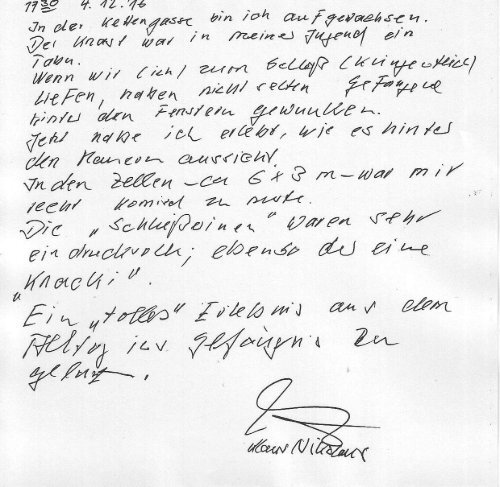 19³⁰ 4.12.16
In der Kettengasse bin ich aufgewachsen.
Der Knast war in meiner Jugend ein
Tabu.
Wenn wir (ich) zum Schloß (Klingenteich)
liefen, haben nicht selten Gefangene
hinter den Fenstern gewunken.
Jetzt habe ich erlebt, wie es hinter
den Mauern aussieht.
In den Zellen – ca 6 x 3 m – war mir
recht komisch zu mute.
Die „Schließerinnen" waren sehr
eindrucksvoll; ebenso der eine
„Knacki".
Ein „tolles" Erlebnis aus dem
Alltag ins Gefängnis zu
Klaus Nikolaus